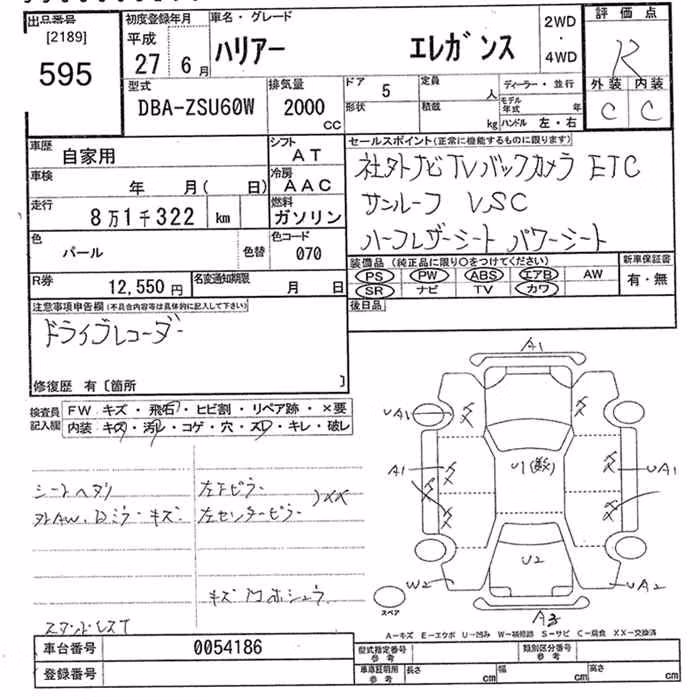 出品番号
[2189]
595
初度登録年月
平成
27 6月
車名・グレード
ハリアー エレガンス
2WD
・
4WD
評価点
R
外装 内装
C C
型式
DBA-ZSU60W
排気量
2000
CC
ドア
5
形状
定員
人
積載
kg
ディーラー・並行
モデル年式 年
ハンドル 左・右
車歴
自家用
シフト
AT
車検
年 月( 日)
冷房
AAC
走行
8万1千322 km
燃料
ガソリン
色
パール
色替
色コード
070
R券
12,550円
名変通知期限
月 日
セールスポイント(正常に機能するものに限ります)
社外ナビTVバックカメラ ETC
サンルーフ VSC
ハーフレザーシート パワーシート
装備品(純正品に限り○をつけてください)
PS PW ABS エアB AW
SR ナビ TV カワ
新車保証書
有・無
後日品
注意事項申告欄(不具合内容等は具体的に記入して下さい)
ドライブレコーダー
修復歴 有〔箇所 〕
検査員記入欄
FW キズ・飛石・ヒビ割・リペア跡・×要
内装 キズ・汚レ・コゲ・穴・スレ・キレ・破レ
シートヘタリ
外AW、Dミラーキズ
左Fピラー
左センターピラー
)XX
キズ
A1
UA1
A1
U1
UA1
U2
W2
UA2
A3
スペア
A−キズ E−エクボ U−凹み W−補修跡 S−サビ C−腐食 XX−交換済
車台番号
0054186
登録番号
型式指定番号
参考
類別区分番号
参考
車庫証明用
参考
長さ cm
幅 cm
高さ cm